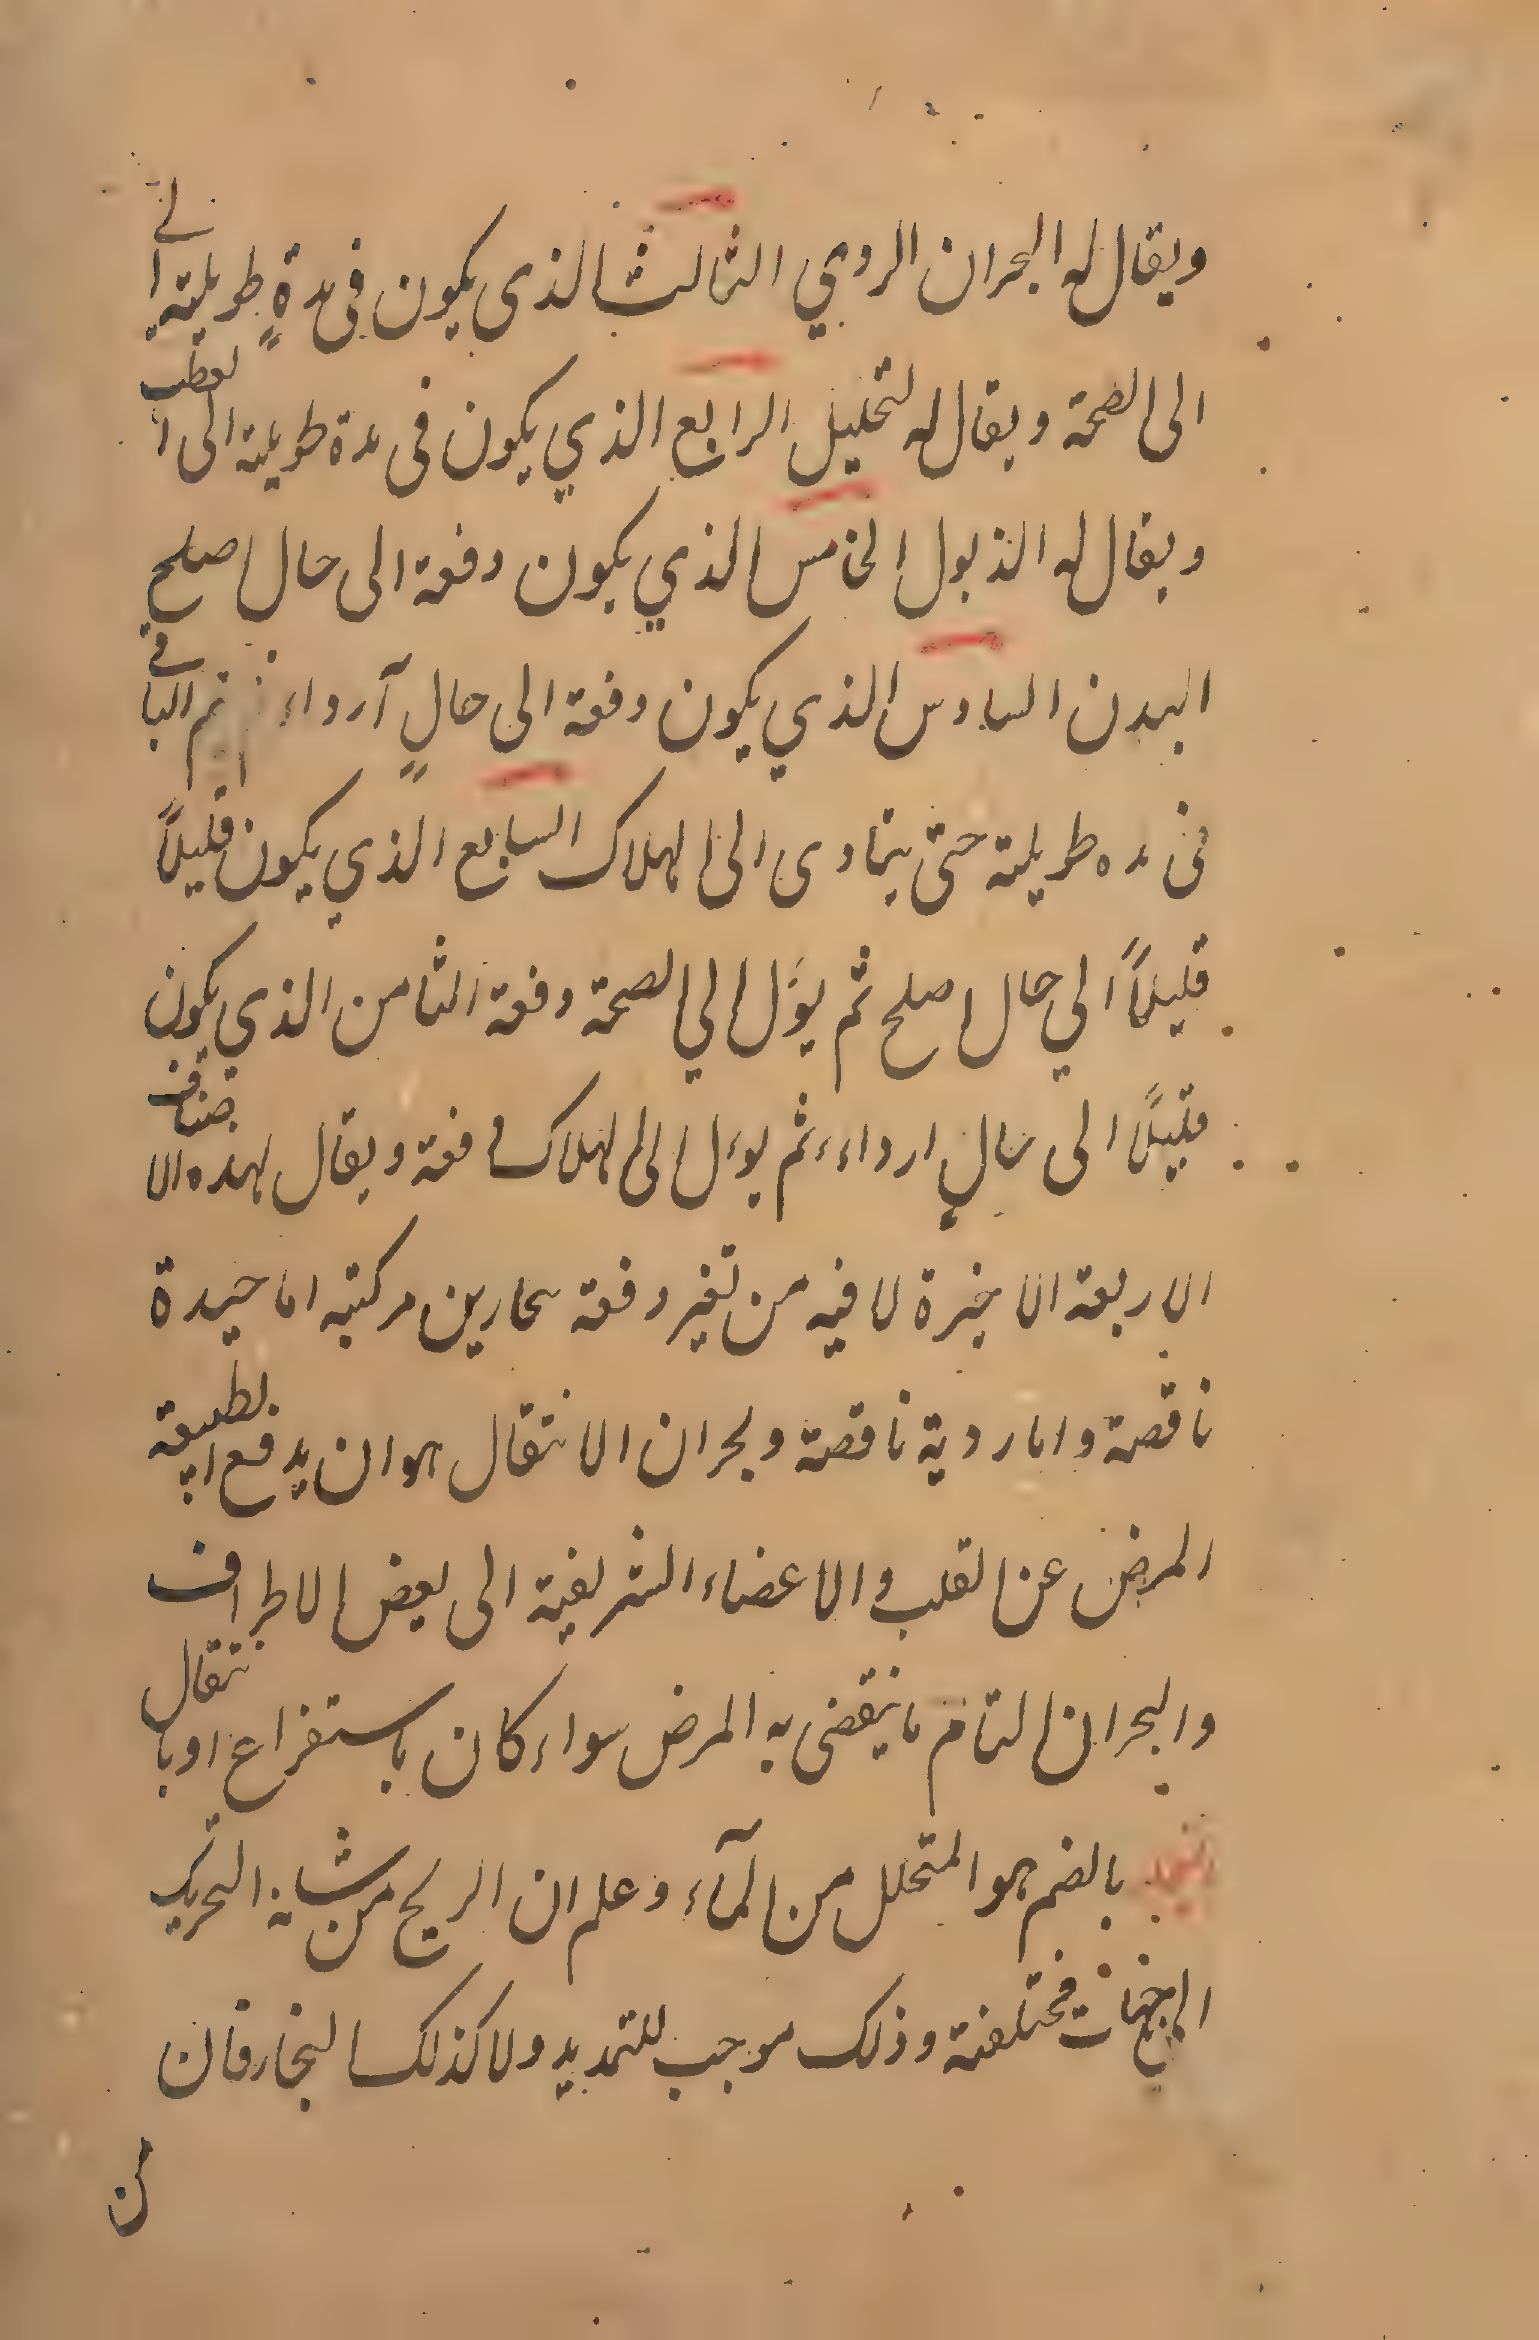 ويقال له البحران الردي الثالث الذي يكون في مدةٍ طويلة الى
الى الصحة ويقال له لتحليل الرابع الذي يكون في مدة طويلة الى العطب
ويقال له الذبول الخامس الذي يكون دفعة الى حال اصلح
البدن السادس الذي يكون دفعة الى حالٍ آرداء ثم الباقي
في مده طويلة حتى يتادى الى الهلاك السابع الذي يكون قليلاً
قليلاً الي حال اصلح ثم يؤل الي الصحة دفعة الثامن الذي يكون
قليلاً الى حالٍ ارداء ثم يوءل الى الهلاك دفعة ويقال لهذه الاصناف
الاربعة الاخيرة لا فيه من تغير دفعة بحارين مركبة اما جيدة
ناقصة واما ردية ناقصة وبحران الانتقال هو ان يدفع الطبيعة
المرض عن القلب والاعضاء الشريفة الى بعض الاطراف
والبحران التام ما ينقضى به المرض سواء كان باستفراغ او بانتقال
بالضم هو المتحلل من المآء وعلم ان الريح من شانه التحريك
الى جهات مختلفة وذلك موجب للتمديد ولا كذلك البخار فان